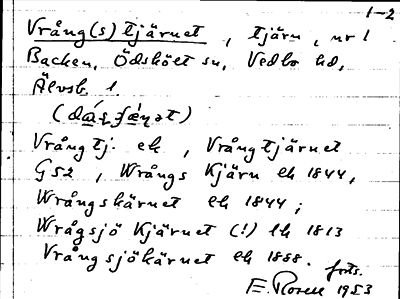 1-2
Vrång(s)tjärnet, tjärn, nr 1
Backen, Ödskölt sn, Vedbo hd,
Älvsb. l.
Vrångtj. ek, Vrångtjärnet
G52, Wrångs Kjärn lh 1844,
Wrångskärnet lh 1844;
Wrågsjö Kjärnet (!) lh 1813
Vrångsjökärnet ek 1888.
forts.
E. Rosen 1953